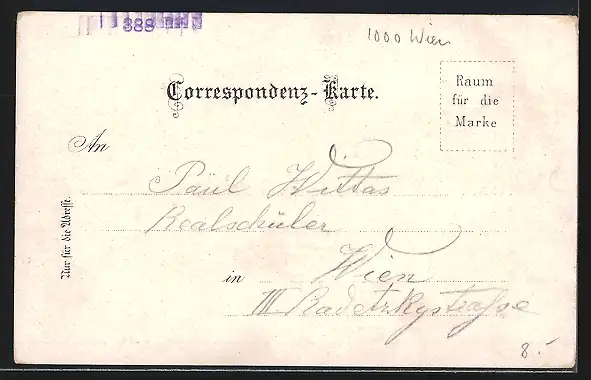 388
1000 Wien
Correspondenz-Karte.
Raum
für die
Marke
An
Paul Wittas
Realschüler
Nur für die Adresse.
in Wien
III Radetzkystraße
8.-